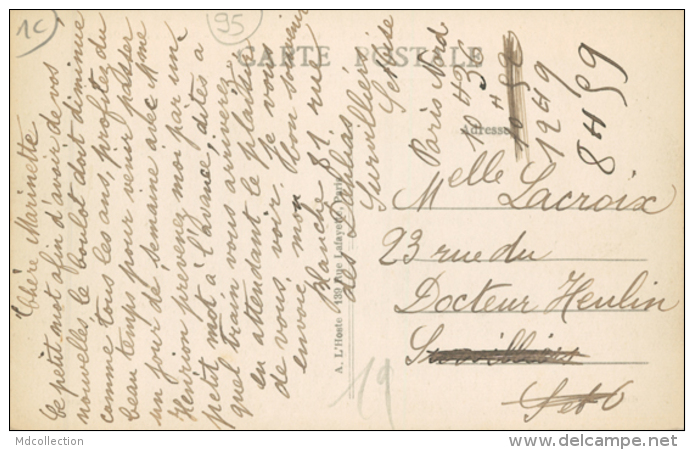 1C
95
CARTE POSTALE
Chère Marinette
Ce petit mot afin d'avoir de vos
nouvelles, le boulot doit diminué
comme tous les ans, profitez du
beau temps pour venir passer
un jour de semaine avec Mme
Henrion prevenez moi par un
petit mot à l'avance, dites a
quel train vous arriverez
en attendant le plaisir
de vous voir. Je vous
envoie mon bon souvenir
Blanche 81 rue
des Dahlias
Survilliers
Set Oise
Paris Nord
10 H 35
12 H 9
8 H 59
Adresse
Melle Lacroix
23 rue du
Docteur Heulin
Survilliers
S et O
A. L'Hoste - 139 rue Lafayette, Paris
19
Mdcollection
delcampe.net